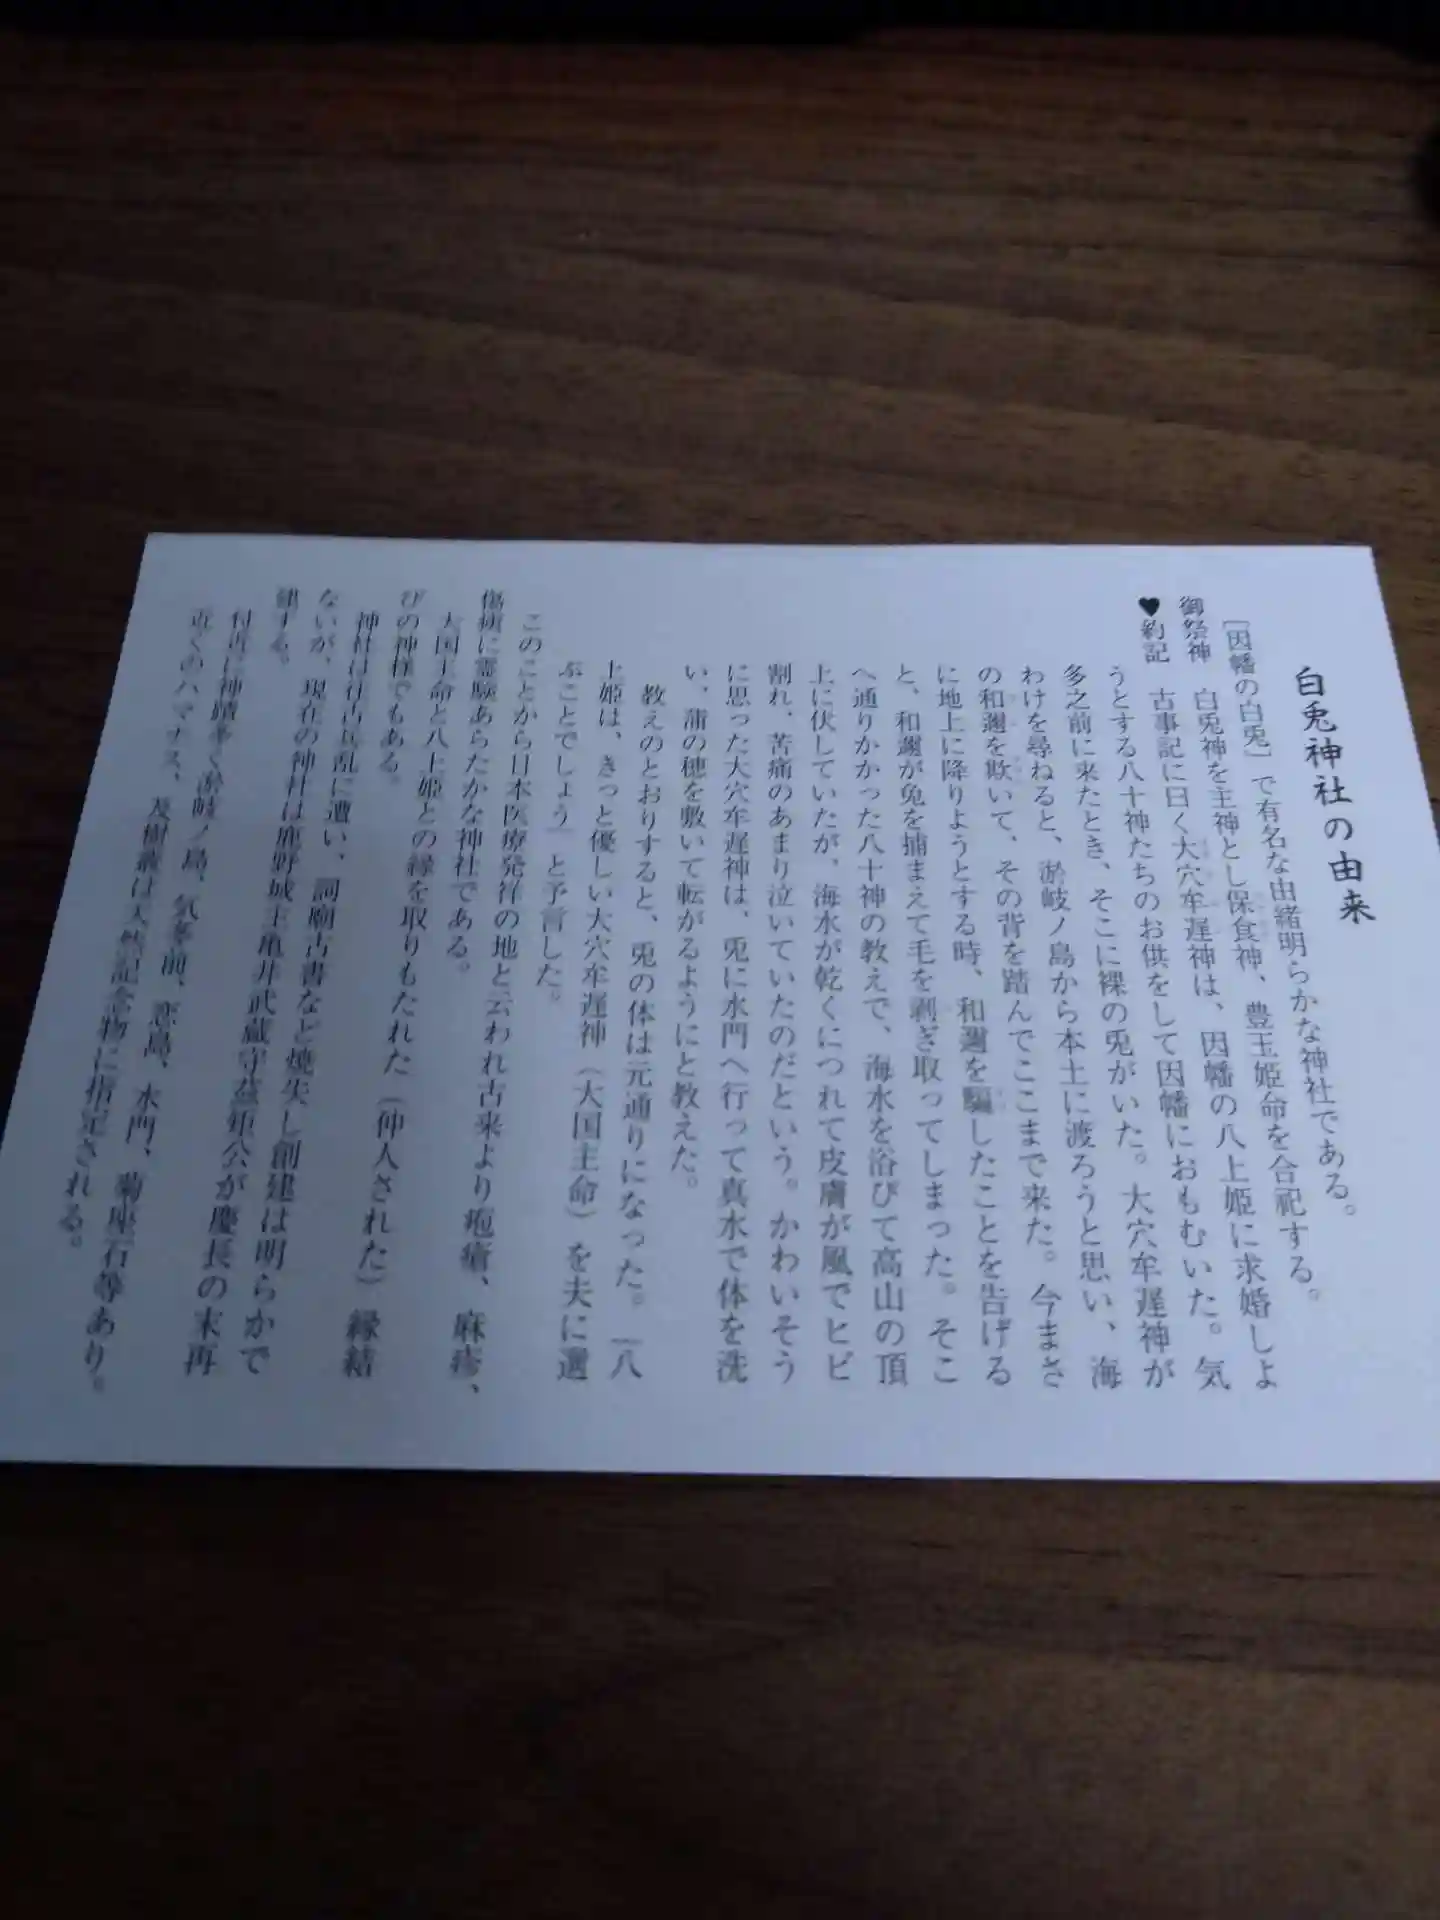 白兎神社の由来
［因幡の白兎］で有名な由緒明らかな神社である。
御祭神　白兎神を主神とし保食神、豊玉姫命を合祀する。
♥約記　古事記に曰く大穴牟遅神は、因幡の八上姫に求婚しよ
うとする八十神たちのお供をして因幡におもむいた。気
多之前に来たとき、そこに裸の兎がいた。大穴牟遅神が
わけを尋ねると、淤岐ノ島から本土に渡ろうと思い、海
の和邇を欺いて、その背を踏んでここまで来た。今まさ
に地上に降りようとする時、和邇を騙したことを告げる
と、和邇が兎を捕まえて毛を剥ぎ取ってしまった。そこ
へ通りかかった八十神の教えで、海水を浴びて高山の頂
上に伏していたが、海水が乾くにつれて皮膚が風でヒビ
割れ、苦痛のあまり泣いていたのだという。かわいそう
に思った大穴牟遅神は、兎に水門へ行って真水で体を洗
い、蒲の穂を敷いて転がるようにと教えた。
教えのとおりすると、兎の体は元通りになった。「八
上姫は、きっと優しい大穴牟遅神（大国主命）を夫に選
ぶことでしょう」と予言した。
このことから日本医療発祥の地と云われ古来より疱瘡、麻疹、
傷痍に霊験あらたかな神社である。
大国主命と八上姫との縁を取りもたれた（仲人された）縁結
びの神様でもある。
神社は往古兵乱に遭い、詞廟古書など焼失し創建は明らかで
ないが、現在の神社は鹿野城主亀井武蔵守茲矩公が慶長の末再
建する。
付近に神蹟多く淤岐ノ島、気多前、恋島、水門、菊座石等あり。
近くのハマナス、及樹叢は天然記念物に指定される。